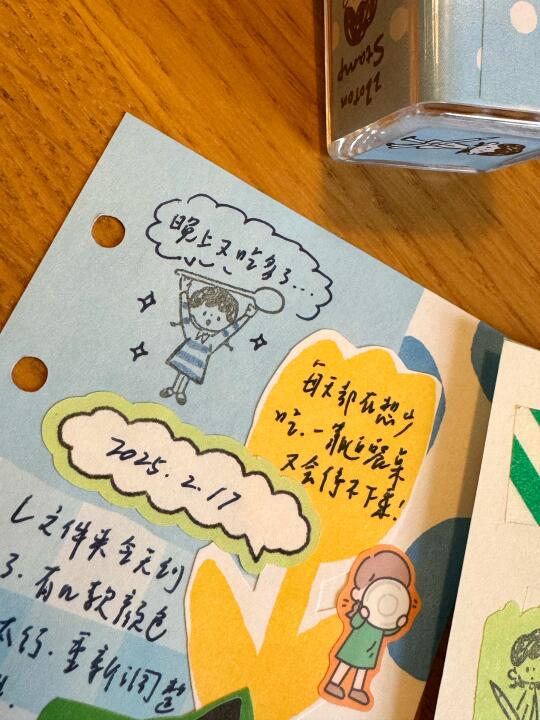 Hoton
Stamp
晚上又吃多了...
每天都在想少
吃.一靠近餐桌
又会停不下来!
2025.2.17
L文件夹今天到
了.有几款颜色
不行.重新调整